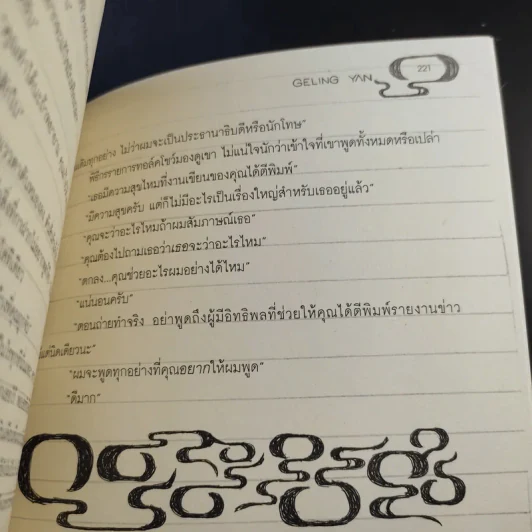 GELING YAN
221
เดิมทุกอย่าง ไม่ว่าผมจะเป็นประธานาธิบดีหรือนักโทษ"
พิธีกรรายการทอล์คโชว์มองดูเขา ไม่แน่ใจนักว่าเข้าใจที่เขาพูดทั้งหมดหรือเปล่า
"เธอมีความสุขไหมที่งานเขียนของคุณได้ตีพิมพ์"
"มีความสุขครับ แต่ก็ไม่มีอะไรเป็นเรื่องใหญ่สำหรับเธออยู่แล้ว"
"คุณจะว่าอะไรไหมถ้าผมสัมภาษณ์เธอ"
"คุณต้องไปถามเธอว่าเธอจะว่าอะไรไหม"
"ตกลง...คุณช่วยอะไรผมอย่างได้ไหม"
"แน่นอนครับ"
"ตอนถ่ายทำจริง อย่าพูดถึงผู้มีอิทธิพลที่ช่วยให้คุณได้ตีพิมพ์รายงานข่าว
นิดเดียวนะ"
"ผมจะพูดทุกอย่างที่คุณอยากให้ผมพูด"
"ดีมาก"